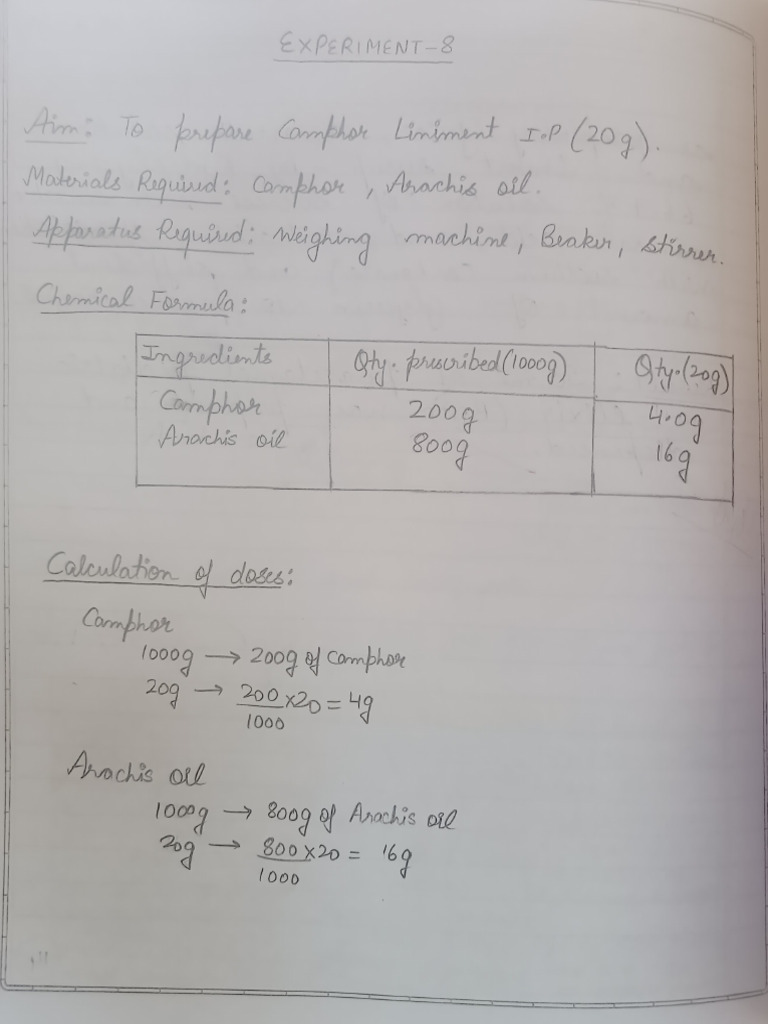 EXPERIMENT-8
Aim: To prepare Camphor Liniment I.P (20g).
Materials Required: Camphor, Arachis oil.
Apparatus Required: Weighing machine, Beaker, Stirrer.
Chemical Formula:
Ingredients Qty. prescribed (1000g) Qty. (20g)
Camphor 200g 4.0g
Arachis oil 800g 16g
Calculation of doses:
Camphor
1000g → 200g of camphor
20g → 200/1000 x20 = 4g
Arachis oil
1000g → 800g of Arachis oil
20g → 800/1000 x20 = 16g